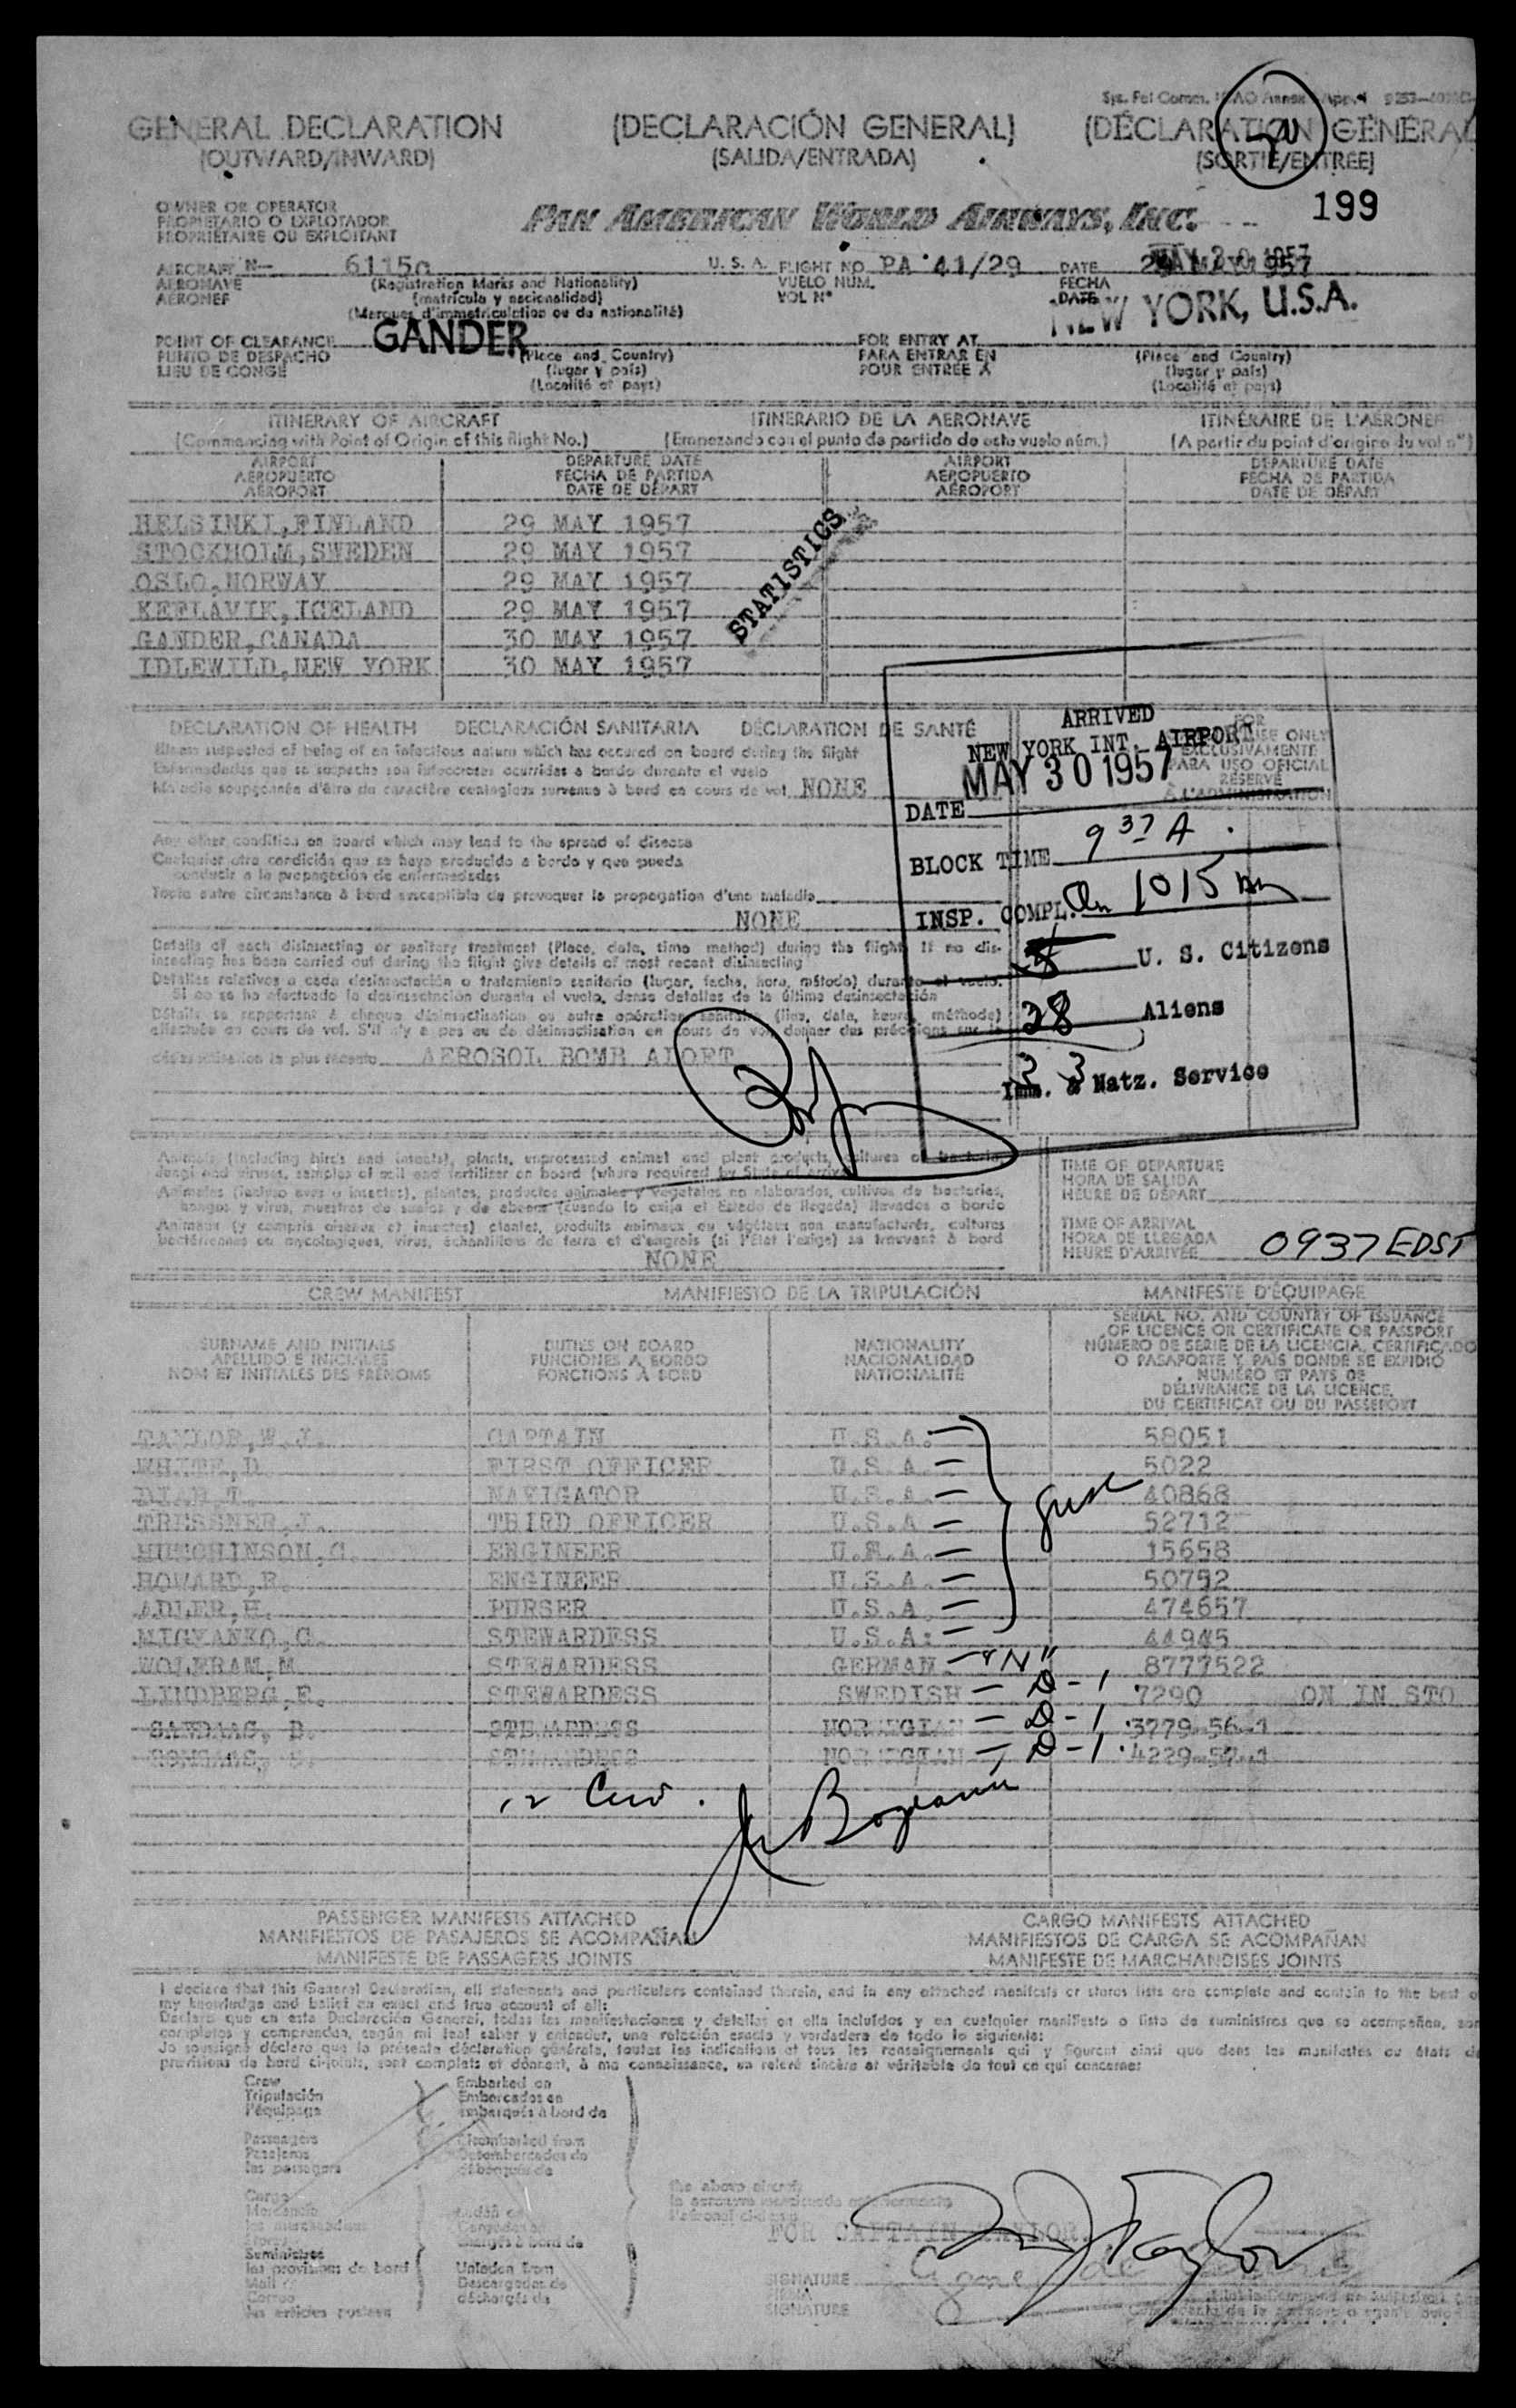 GENERAL DECLARATION (DECLARACIÓN GENERAL) (DÉCLARATION GÉNÉRAL
(OUTWARD/INWARD) (SALIDA/ENTRADA) (SORTIE/ENTREE)
199
OWNER OR OPERATOR
PROPIETARIO O EXPLOTADOR
PROPRIÉTAIRE OU EXPLOITANT
PAN AMERICAN WORLD AIRWAYS, INC.
AIRCRAFT N- 6115 U. S. A. FLIGHT NO. PA 41/29 DATE 29 MAY 1957
AERONAVE (Registration Marks and Nationality) VUELO NUM. FECHA
AÉRONEF (matrícula y nacionalidad) VOL N° DATE
(Marques d'immatriculation ou de nationalité)
NEW YORK, U.S.A.
POINT OF CLEARANCE GANDER FOR ENTRY AT
PUNTO DE DESPACHO (Place and Country) PARA ENTRAR EN (Place and Country)
LIEU DE CONGÉ (lugar y país) POUR ENTRÉE A (lugar y país)
(Localité et pays) (Localité et pays)
ITINERARY OF AIRCRAFT ITINERARIO DE LA AERONAVE ITINÉRAIRE DE L'AÉRONEF
(Commencing with Point of Origin of this flight No.) (Empezando con el punto de partida de este vuelo núm.) (A partir du point d'origine du vol n°)
AIRPORT DEPARTURE DATE AIRPORT DEPARTURE DATE
AEROPUERTO FECHA DE PARTIDA AEROPUERTO FECHA DE PARTIDA
AÉROPORT DATE DE DÉPART AÉROPORT DATE DE DÉPART
HELSINKI,FINLAND 29 MAY 1957
STOCKHOLM,SWEDEN 29 MAY 1957
OSLO,NORWAY 29 MAY 1957
KEFLAVIK,ICELAND 29 MAY 1957
GANDER,CANADA 30 MAY 1957
IDLEWILD,NEW YORK 30 MAY 1957
STATISTICS
DECLARATION OF HEALTH DECLARACIÓN SANITARIA DÉCLARATION DE SANTÉ
Illness suspected of being of an infectious nature which has occured on board during the flight
Enfermedades que se sospecha son infecciosas ocurridas a bordo durante el vuelo
Maladie soupçonnée d'être de caractère contagieux survenue à bord en cours de vol NONE
FOR
USE ONLY
EXCLUSIVAMENTE
PARA USO OFICIAL
RÉSERVÉ
À L'ADMINISTRATION
ARRIVED
NEW YORK INT. AIRPORT
MAY 30 1957
DATE
BLOCK TIME 9 37 A.
INSP. COMPL. 1015
U. S. Citizens
28 Aliens
33
Imm. & Natz. Service
Any other condition on board which may lead to the spread of disease
Cualquier otra condición que se haya producido a bordo y que pueda
conducir a la propagación de enfermedades
Toute autre circonstance à bord susceptible de provoquer la propagation d'une maladie
NONE
Details of each disinsecting or sanitary treatment (Place, date, time method) during the flight. If no dis-
insecting has been carried out during the flight give details of most recent disinsecting
Detalles relativos a cada desinsectación o tratamiento sanitario (lugar, fecha, hora, método) durante el vuelo.
Si no se ha efectuado la desinsectación durante el vuelo, dense detalles de la última desinsectación
Détails se rapportant à chaque désinsectisation ou autre opération sanitaire (lieu, date, heure, méthode)
effectuée au cours de vol. S'il n'y a pas eu de désinsectisation en cours de vol, donner des précisions sur la
désinsectisation la plus récente AEROSOL BOMB
Animals (including birds and insects), plants, unprocessed animal and plant products, cultures of bacteria,
fungi and viruses, samples of soil and fertilizer on board (where required by State of arrival)
Animales (incluso aves e insectos), plantas, productos animales y vegetales no elaborados, cultivos de bacterias,
hongos y virus, muestras de suelos y de abonos (cuando lo exija el Estado de llegada) llevados a bordo
Animaux (y compris oiseaux et insectes) plantes, produits animaux ou végétaux non manufacturés, cultures
bactériennes ou mycologiques, virus, échantillons de terre et d'engrais (si l'État l'exige) se trouvant à bord
NONE
TIME OF DEPARTURE
HORA DE SALIDA
HEURE DE DÉPART
TIME OF ARRIVAL
HORA DE LLEGADA
HEURE D'ARRIVÉE 0937 EDST
CREW MANIFEST MANIFIESTO DE LA TRIPULACIÓN MANIFESTE D'ÉQUIPAGE
SURNAME AND INITIALS DUTIES ON BOARD NATIONALITY SERIAL NO. AND COUNTRY OF ISSUANCE
APELLIDO E INICIALES FUNCIONES A BORDO NACIONALIDAD OF LICENCE OR CERTIFICATE OR PASSPORT
NOM ET INITIALES DES PRÉNOMS FONCTIONS À BORD NATIONALITÉ NÚMERO DE SERIE DE LA LICENCIA, CERTIFICADO
O PASAPORTE Y PAÍS DONDE SE EXPIDIÓ
NUMÉRO ET PAYS DE
DÉLIVRANCE DE LA LICENCE,
DU CERTIFICAT OU DU PASSEPORT
TAYLOR,W.J. CAPTAIN U.S.A. 58051
WHITE,D. FIRST OFFICER U.S.A. 5022
T. NAVIGATOR U.S.A. 40868
TRESSNER,J. THIRD OFFICER U.S.A 52712
HUTCHINSON,G. ENGINEER U.S.A. 15658
HOWARD,R. ENGINEER U.S.A. 50752
ADLER,H. PURSER U.S.A. 474657
MIGYANKO,G. STEWARDESS U.S.A. 44945
WOLFRAM,M STEWARDESS GERMAN "N" 8777522
LINDBERG,E. STEWARDESS SWEDISH D-1 7290 ON IN STO
STEWARDESS NORWEGIAN D-1 3779-56-1
STEWARDESS NORWEGIAN D-1 4229-57-1
12 Crew.
PASSENGER MANIFESTS ATTACHED CARGO MANIFESTS ATTACHED
MANIFIESTOS DE PASAJEROS SE ACOMPAÑAN MANIFIESTOS DE CARGA SE ACOMPAÑAN
MANIFESTE DE PASSAGERS JOINTS MANIFESTE DE MARCHANDISES JOINTS
I declare that this General Declaration, all statements and particulars contained therein, and in any attached manifests or stores lists are complete and contain to the best o
my knowledge and belief an exact and true account of all:
Declaro que en esta Declaración General, todas las manifestaciones y detalles en ella incluídos y en cualquier manifiesto o lista de suministros que se acompañan, son
completos y comprenden, según mi leal saber y entender, una relación exacta y verdadera de todo lo siguiente:
Je soussigné déclare que la présente déclaration générale, toutes les indications et tous les renseignements qui y figurent ainsi que dans les manifestes ou états de
provisions de bord ci-joints, sont complets et donnent, à ma connaissance, un relevé sincère et véritable de tout ce qui concerne:
Crew Embarked on
Tripulación Embarcados en
l'équipage embarqués à bord de
Passengers Disembarked from
Pasajeros Desembarcados de
les passagers débarqués de
Cargo
Mercancía
les marchandises
Suministros
les provisions de bord Unladen from
Mail Descargados de
Correo déchargés de
les articles postaux
the above aircraft
FOR CAPTAIN TAYLOR
SIGNATURE
FIRMA
SIGNATURE